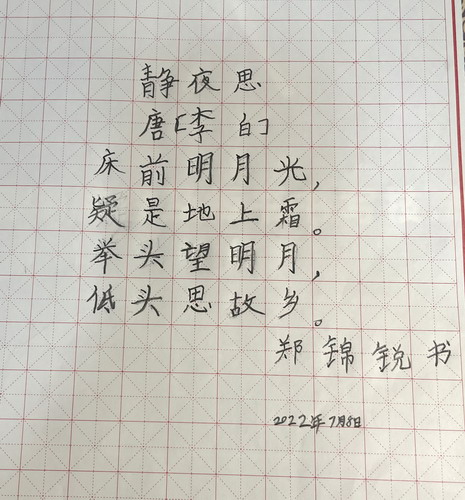 静夜思
唐[李白]
床前明月光,
疑是地上霜。
举头望明月,
低头思故乡。
郑锦锐书
2022年7月8日